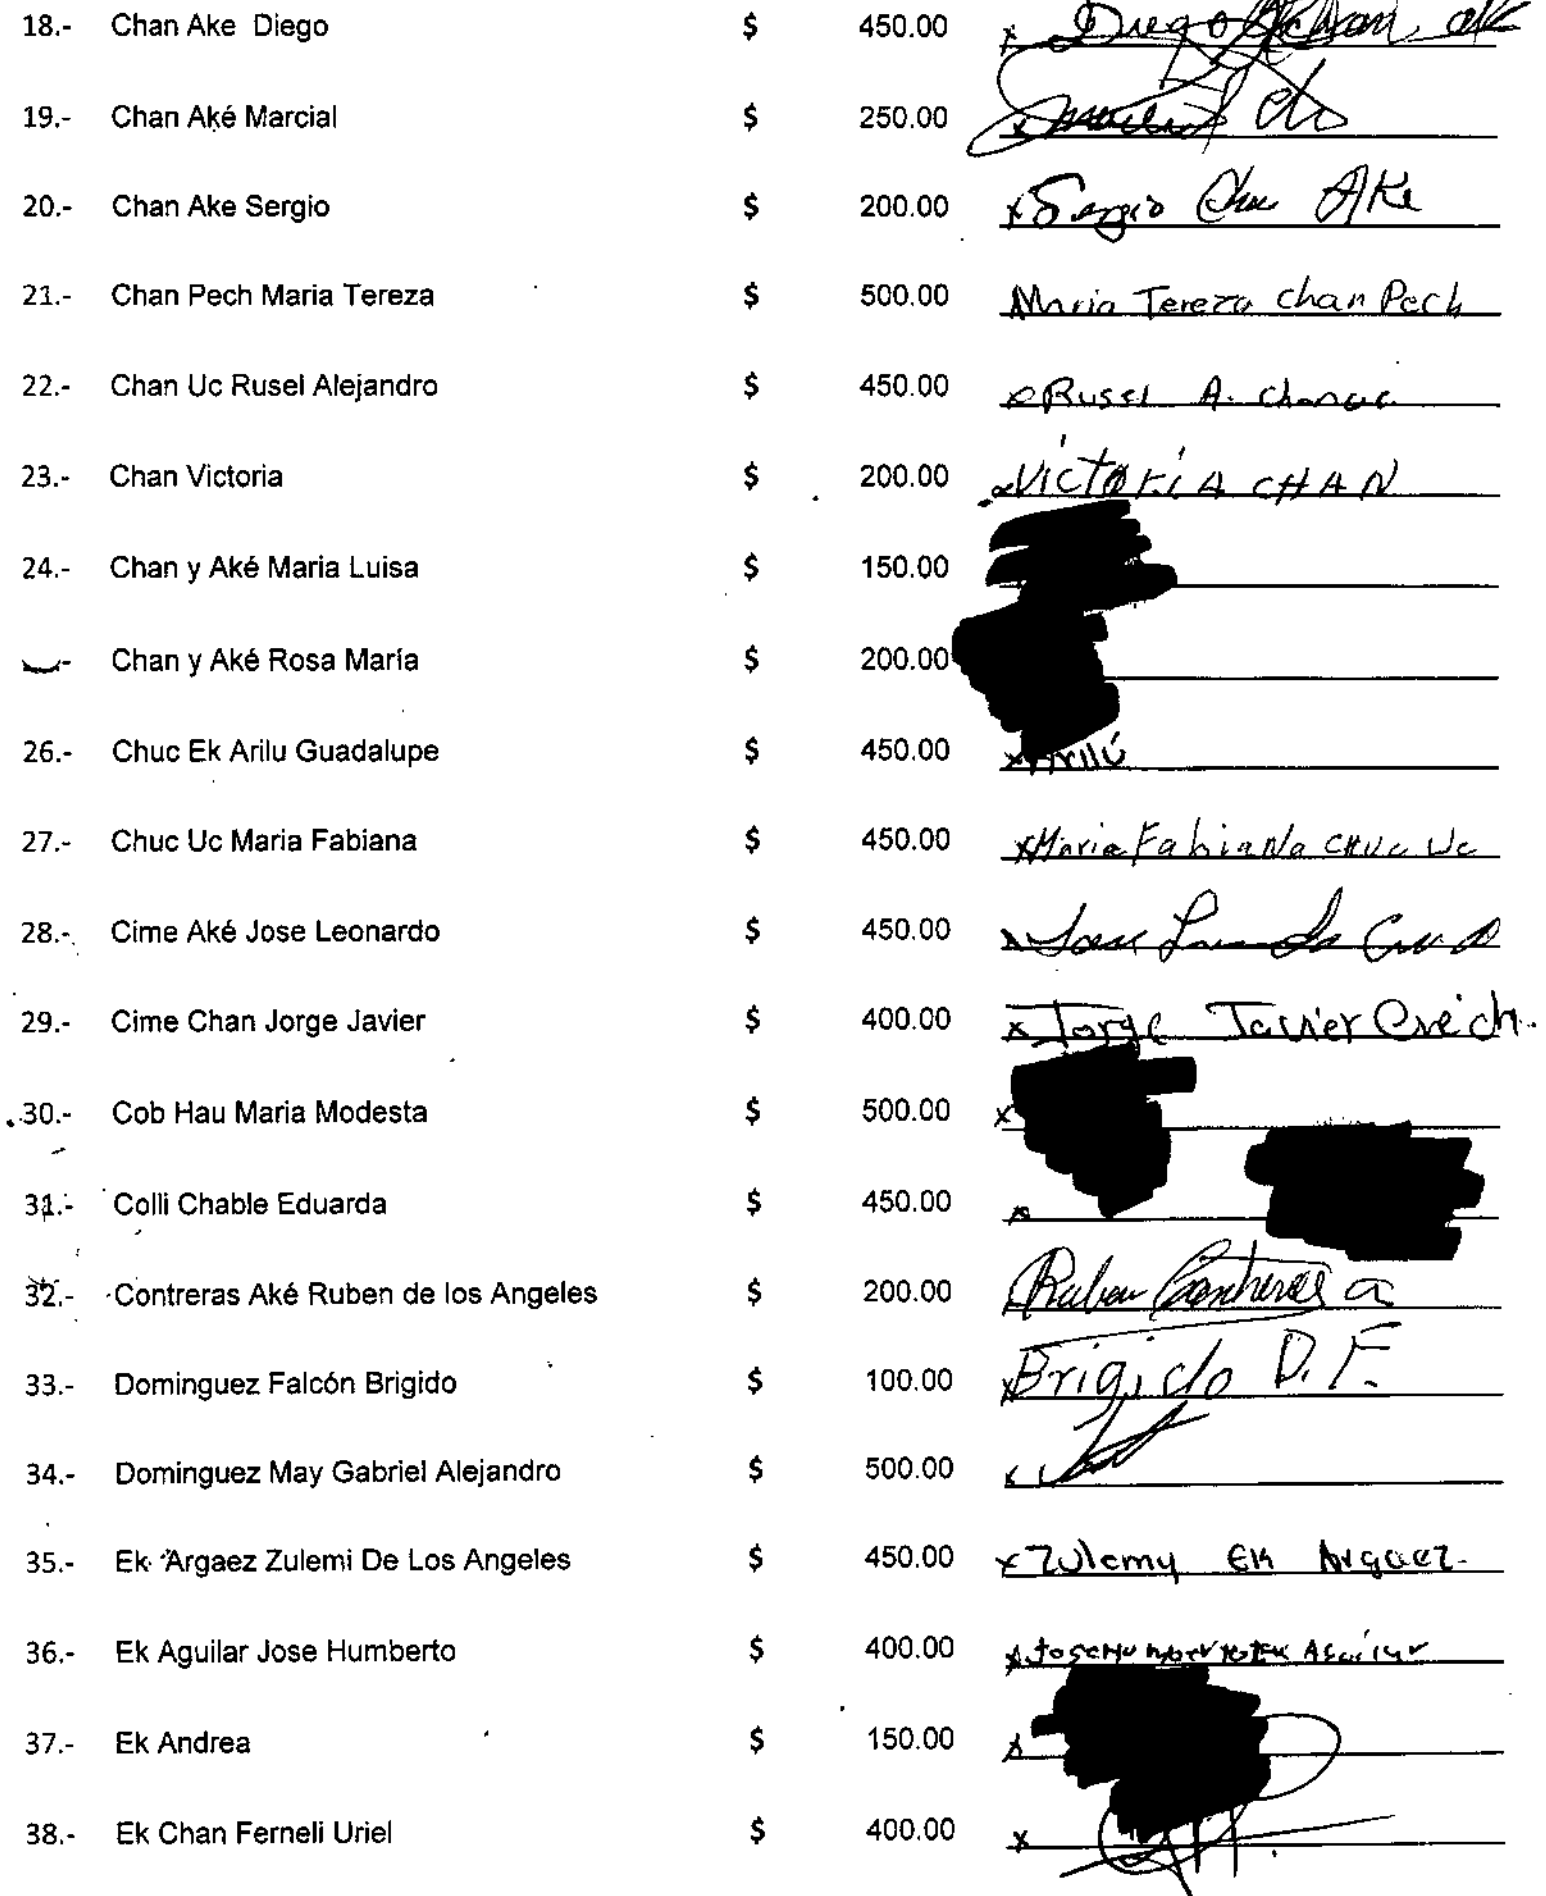 18.- Chan Ake Diego $ 450.00 x Diego Chan ak
19.- Chan Aké Marcial $ 250.00
20.- Chan Ake Sergio $ 200.00 x Sergio Ake
21.- Chan Pech Maria Tereza $ 500.00 Maria Tereza Chan Pech
22.- Chan Uc Rusel Alejandro $ 450.00 Rusel A. Chan uc.
23.- Chan Victoria $ 200.00 VictoriA CHAN
24.- Chan y Aké Maria Luisa $ 150.00
- Chan y Aké Rosa María $ 200.00
26.- Chuc Ek Arilu Guadalupe $ 450.00 x Arilú
27.- Chuc Uc Maria Fabiana $ 450.00 x Maria Fabiana CHuc Uc
28.- Cime Aké Jose Leonardo $ 450.00 x Jose
29.- Cime Chan Jorge Javier $ 400.00 x Jorge Javier
30.- Cob Hau Maria Modesta $ 500.00 x
31.- Colli Chable Eduarda $ 450.00 x
32.- Contreras Aké Ruben de los Angeles $ 200.00 Ruben Contreras a
33.- Dominguez Falcón Brigido $ 100.00 x Brigido D. F.
34.- Dominguez May Gabriel Alejandro $ 500.00 x
35.- Ek Argaez Zulemi De Los Angeles $ 450.00 x Zulemy EK Argaez.
36.- Ek Aguilar Jose Humberto $ 400.00 x Jose Humberto Ek Aguilar
37.- Ek Andrea $ 150.00 x
38.- Ek Chan Ferneli Uriel $ 400.00 x